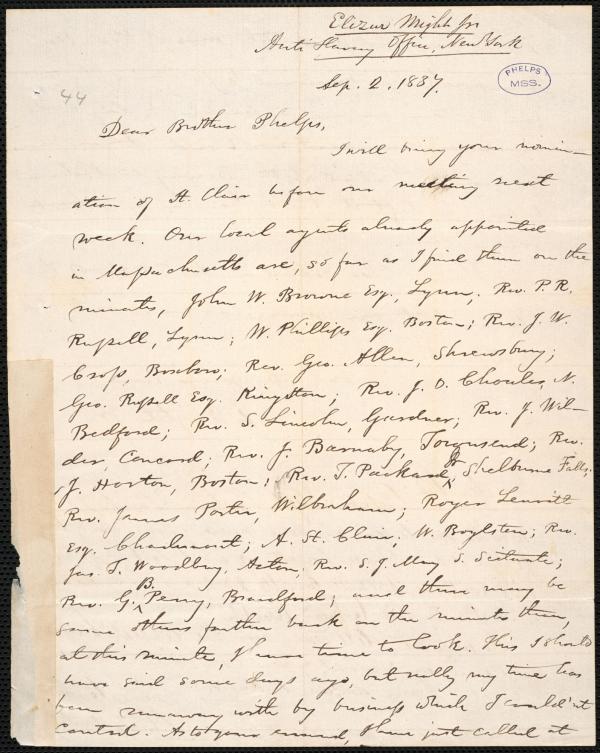 Elizur Wright Jr
Anti Slavery Office, New York
Sep. 2, 1837.
PHELPS
MSS.
44
Dear Brother Phelps,
I will bring your nomin-
ation of St. Clair before our meeting next
week. Our local agents already appointed
in Massachusetts are, so far as I find them on the
minutes, John W. Browne Esq., Lynn; Rev. P.R.
Russell, Lynn; W. Phillips Esq. Boston; Rev. J. W.
Cross, Boxboro; Rev. Geo. Allen, Shrewsbury;
Geo. Russell Esq. Kingston; Rev. J. O. Choules, N.
Bedford; Rev. S. Lincoln, Gardner; Rev. J. Wil-
der, Concord; Rev. J. Barnaby, Townsend; Rev.
J. Horton, Boston; Rev. T. Packard Jr, Shelburne Falls;
Rev. James Porter, Wilbraham; Roger Leavitt
Esq. Charlemont; A. St. Clair, W. Boylston; Rev.
Jas. T. Woodbury, Acton; Rev. S. J. May S. Scituate;
Rev. G. B. Perry, Bradford; and there may be
some others farther back on the minutes than,
at this minute, I have time to look. This I should
have said some days ago, but really my time has
been runaway with by business which I could'nt
control. As to your errand, I have just called at